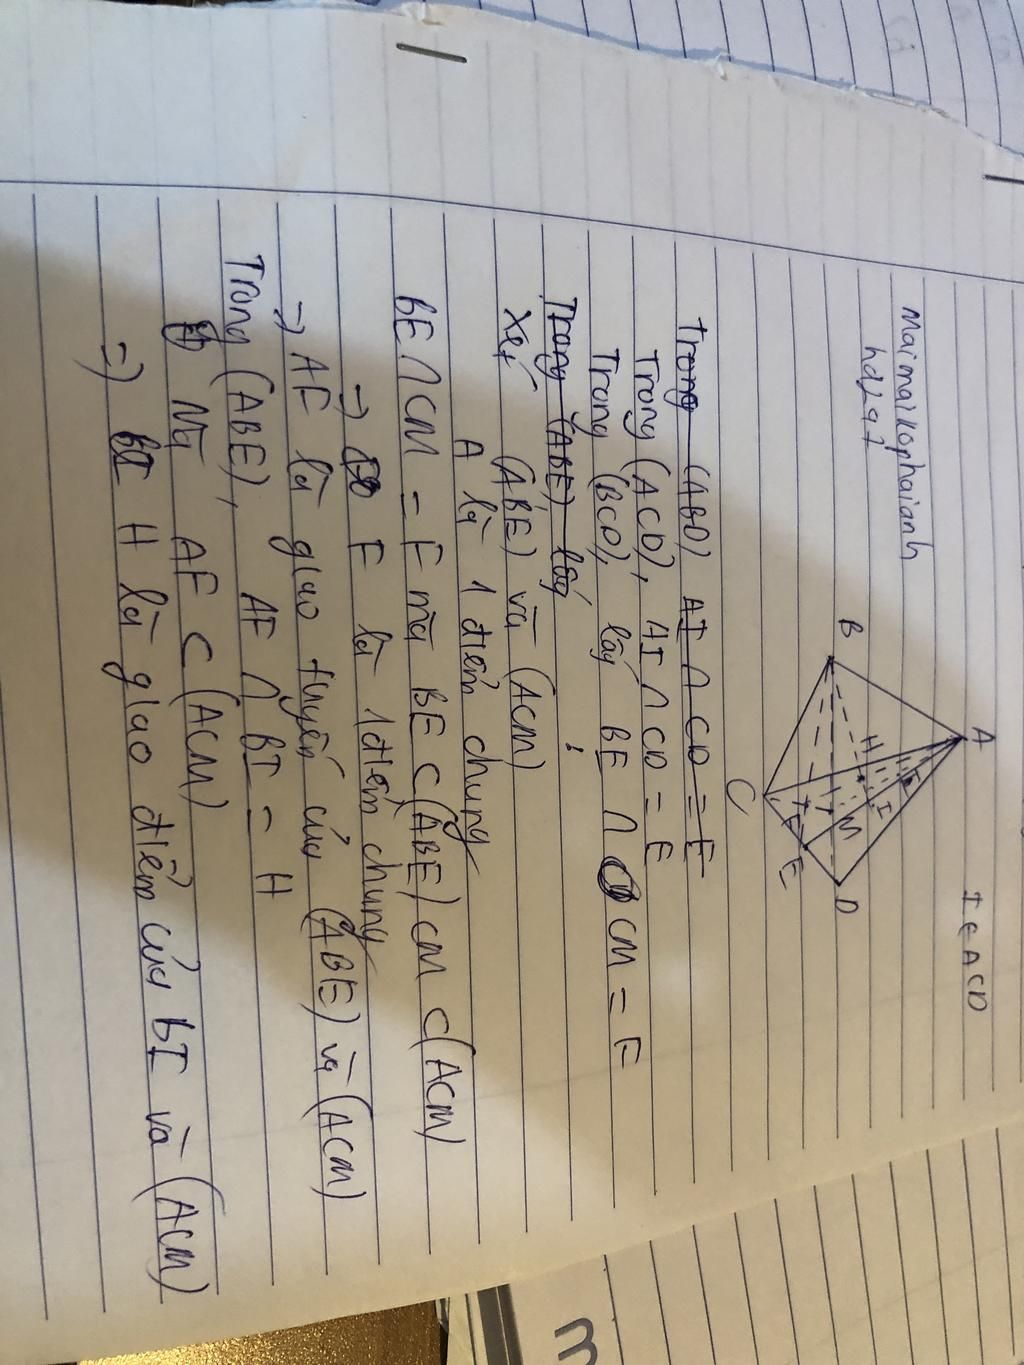 maimaikophaianh
hd2q1
I ∈ ACD
A
B
H
F
I
M
C
E
D
Trong (ABD) AI ∩ CD = E
Trong (ACD), AI ∩ CD = E
Trong (BCD), lấy BE ∩ CM = F
Trong (ABE) lấy
Xét (ABE) và (ACM)
A là 1 điểm chung
BE ∩ CM = F mà BE ⊂ (ABE) CM ⊂ (ACM)
=> F là 1 điểm chung
=> AF là giao tuyến của (ABE) và (ACM)
Trong (ABE), AF ∩ BI = H
Mà AF ⊂ (ACM)
=> H là giao điểm của BI và (ACM)